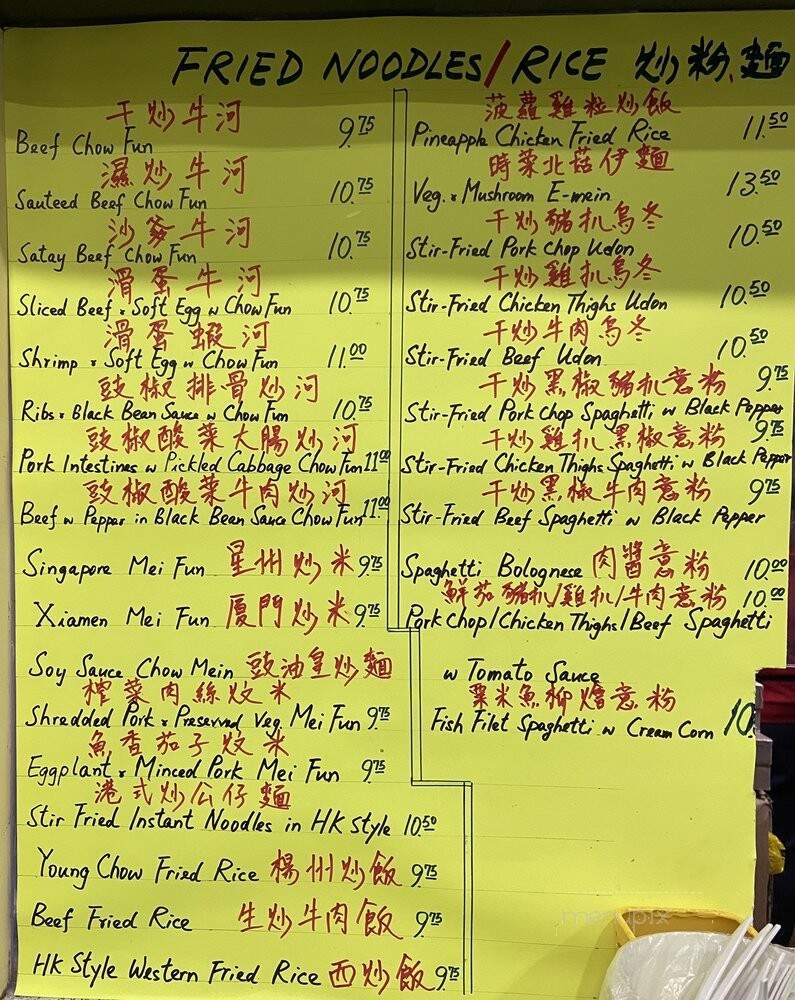 FRIED NOODLES/RICE 炒粉、麵
干炒牛河
Beef Chow Fun 9.75
濕炒牛河
Sauteed Beef Chow Fun 10.75
沙爹牛河
Satay Beef Chow Fun 10.75
滑蛋牛河
Sliced Beef & Soft Egg w Chow Fun 10.75
滑蛋蝦河
Shrimp & Soft Egg w Chow Fun 11.00
豉椒排骨炒河
Ribs & Black Bean Sauce w Chow Fun 10.75
豉椒酸菜大腸炒河
Pork Intestines w Pickled Cabbage Chow Fun 11.00
豉椒酸菜牛肉炒河
Beef w Pepper in Black Bean Sauce Chow Fun 11.00
Singapore Mei Fun 星州炒米 9.75
Xiamen Mei Fun 廈門炒米 9.75
Soy Sauce Chow Mein 豉油皇炒麵
榨菜肉絲炆米
Shredded Pork & Preserved Veg Mei Fun 9.75
魚香茄子炆米
Eggplant & Minced Pork Mei Fun 9.75
港式炒公仔麵
Stir Fried Instant Noodles in HK Style 10.50
Young Chow Fried Rice 楊州炒飯 9.75
Beef Fried Rice 生炒牛肉飯 9.75
HK Style Western Fried Rice 西炒飯 9.75
菠蘿雞粒炒飯
Pineapple Chicken Fried Rice 11.50
時菜北菇伊麵
Veg. & Mushroom E-mein 13.50
干炒豬扒烏冬
Stir-Fried Pork Chop Udon 10.50
干炒雞扒烏冬
Stir-Fried Chicken Thighs Udon 10.50
干炒牛肉烏冬
Stir-Fried Beef Udon 10.50
干炒黑椒豬扒意粉 9.75
Stir-Fried Pork Chop Spaghetti w Black Pepper
干炒雞扒黑椒意粉 9.75
Stir-Fried Chicken Thighs Spaghetti w Black Pepper
干炒黑椒牛肉意粉 9.75
Stir-Fried Beef Spaghetti w Black Pepper
Spaghetti Bolognese 肉醬意粉 10.00
鮮茄豬扒/雞扒/牛肉意粉 10.00
Pork Chop/Chicken Thighs/Beef Spaghetti
w Tomato Sauce
粟米魚柳燴意粉
Fish Filet Spaghetti w Cream Corn 10.
menupix